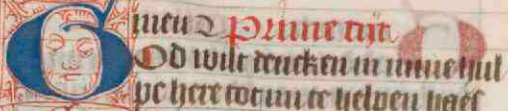 Prime tijt.
GOd wilt dencken in mine hul
pe here tot mi te helpen